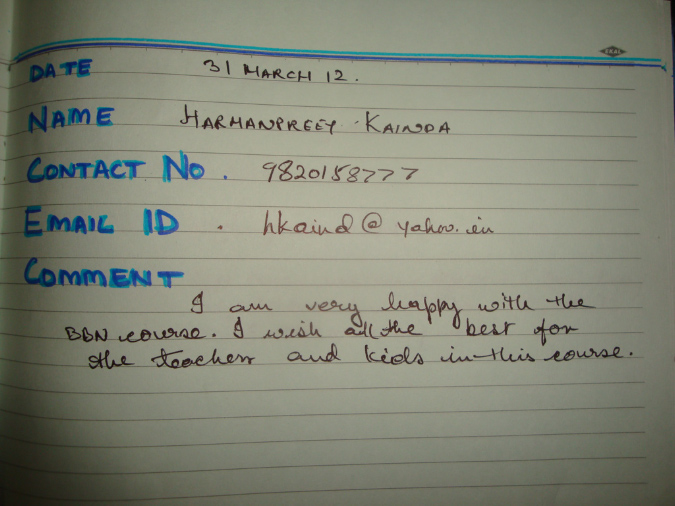 DATE 31 MARCH 12.
NAME HARMANPREET KAINDA
CONTACT NO. 9820158777
EMAIL ID . hkaind@yahoo.in
COMMENT
I am very happy with the
BBN course. I wish all the best for
the teachers and kids in this course.